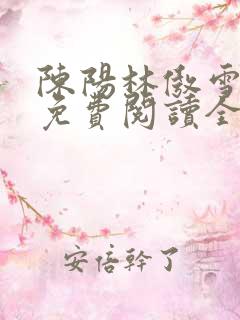 陳陽林傲雪
免費閱讀全
安倍幹了